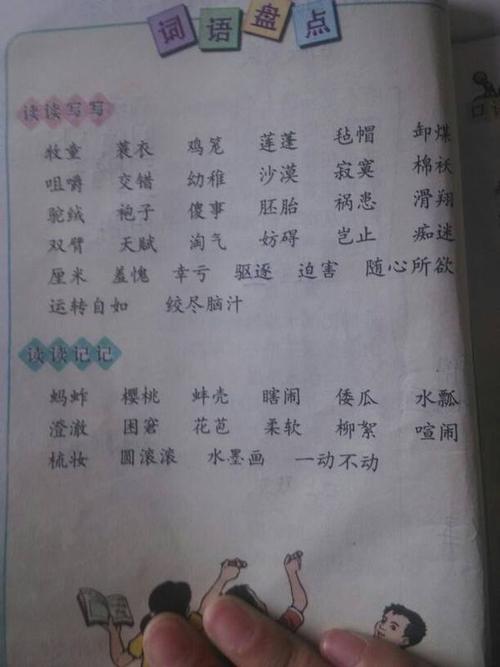 词语盘点
读读写写
牧童 蓑衣 鸡笼 莲蓬 毡帽 卸煤
咀嚼 交错 幼稚 沙漠 寂寞 棉袄
驼绒 袍子 傻事 胚胎 祸患 滑翔
双臂 天赋 淘气 妨碍 岂止 痴迷
厘米 羞愧 幸亏 驱逐 迫害 随心所欲
运转自如 绞尽脑汁
读读记记
蚂蚱 樱桃 蚌壳 瞎闹 倭瓜 水瓢
澄澈 困窘 花苞 柔软 柳絮 喧闹
梳妆 圆滚滚 水墨画 一动不动
口